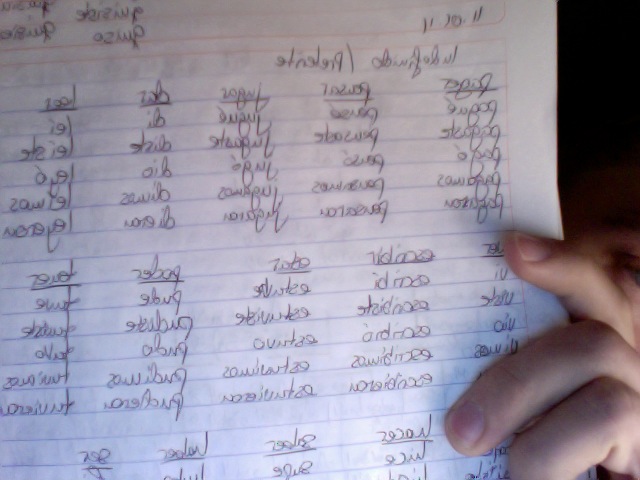 quisiste
11.01.11 quiso
Indefinido / Preterite
pagar pensar jugar dar leer
pagué pensé jugué di leí
pagaste pensaste jugaste diste leiste
pagó pensó jugó dió leyó
pagamos pensamos jugamos dimos leimos
pagaron pensaron jugaron dieron leyeron
ver escribir estar poder tener
vi escribí estuve pude tuve
viste escribiste estuviste pudiste tuviste
vio escribió estuvo pudo tuvo
vimos escribimos estuvimos pudimos tuvimos
escribieron estuvieron pudieron tuvieron
hacer saber haber ser
hice supe